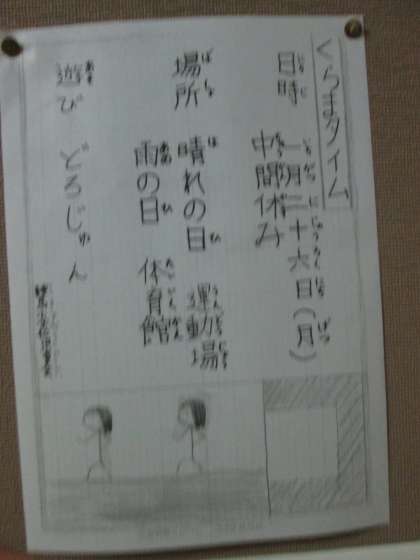 くらまタイム
日時 一月二十六日(月)
中間休み
場所 晴れの日 運動場
雨の日 体育館
遊び どろじゅん